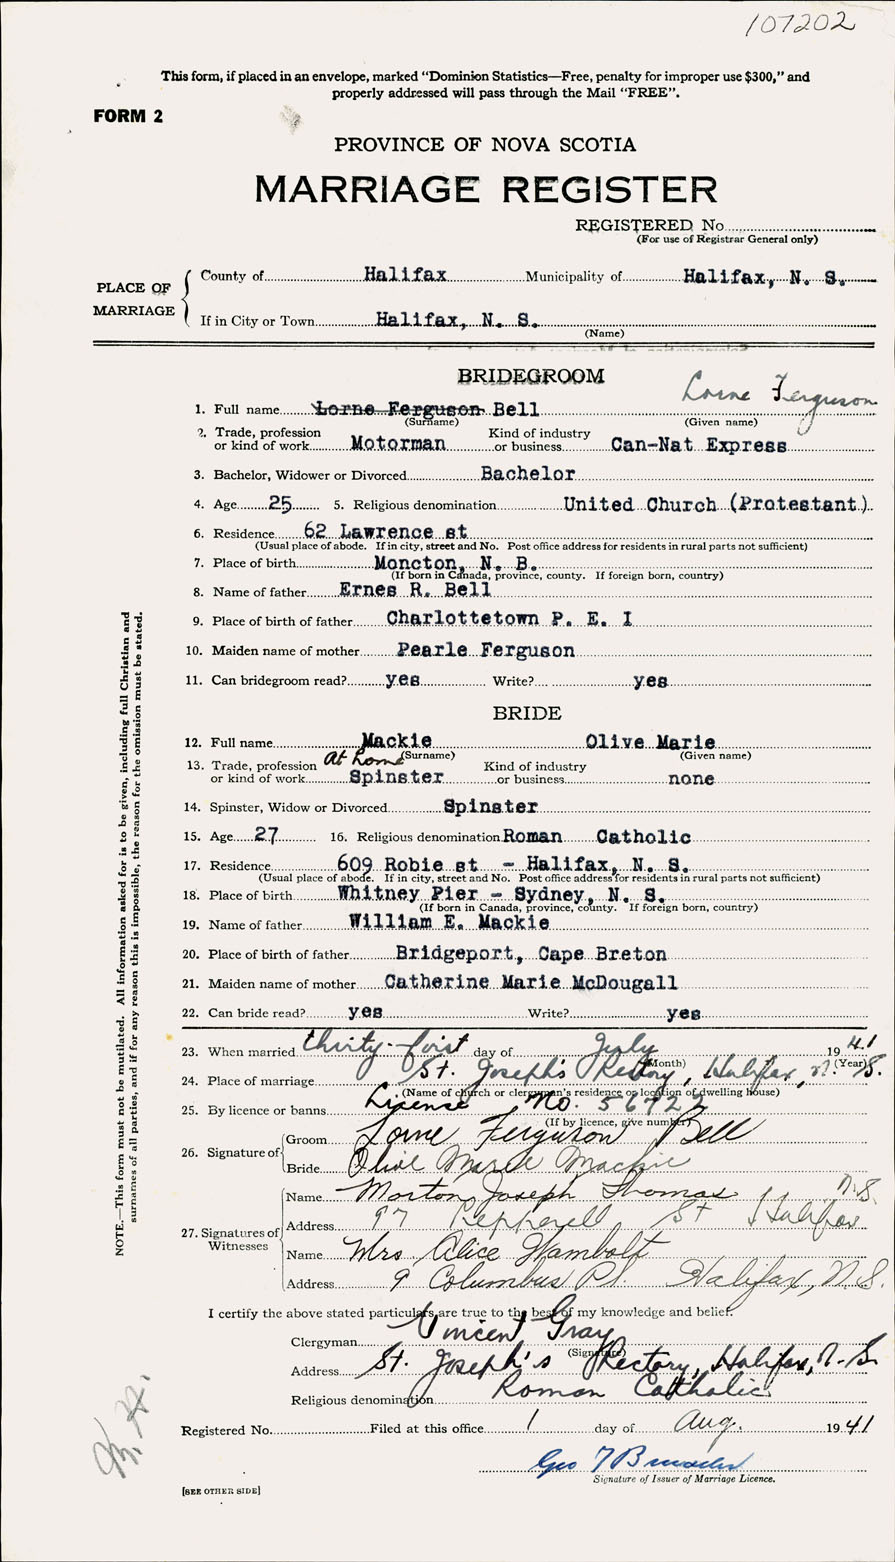 107202
This form, if placed in an envelope, marked “Dominion Statistics—Free, penalty for improper use $300,” and
properly addressed will pass through the Mail “FREE”.
FORM 2
PROVINCE OF NOVA SCOTIA
MARRIAGE REGISTER
REGISTERED No
(For use of Registrar General only)
PLACE OF MARRIAGE
County of Halifax Municipality of Halifax, N. S.
If in City or Town Halifax, N. S.
(Name)
BRIDEGROOM
Lorne Ferguson
1. Full name Lorne Ferguson Bell
(Surname) (Given name)
2. Trade, profession Kind of industry
or kind of work Motorman or business Can-Nat Express
3. Bachelor, Widower or Divorced Bachelor
4. Age 25 5. Religious denomination United Church (Protestant)
6. Residence 62 Lawrence st
(Usual place of abode. If in city, street and No. Post office address for residents in rural parts not sufficient)
7. Place of birth Moncton, N. B.
(If born in Canada, province, county. If foreign born, country)
8. Name of father Ernes R. Bell
9. Place of birth of father Charlottetown P. E. I
10. Maiden name of mother Pearle Ferguson
11. Can bridegroom read? yes Write? yes
BRIDE
12. Full name Mackie Olive Marie
(Surname) (Given name)
13. Trade, profession At home Kind of industry
or kind of work Spinster or business none
14. Spinster, Widow or Divorced Spinster
15. Age 27 16. Religious denomination Roman Catholic
17. Residence 609 Robie st - Halifax, N. S.
(Usual place of abode. If in city, street and No. Post office address for residents in rural parts not sufficient)
18. Place of birth Whitney Pier - Sydney, N. S.
(If born in Canada, province, county. If foreign born, country)
19. Name of father William E. Mackie
20. Place of birth of father Bridgeport, Cape Breton
21. Maiden name of mother Catherine Marie McDougall
22. Can bride read? yes Write? yes
23. When married thirty-first day of July 1941
(Month) (Year)
24. Place of marriage St. Joseph's Rectory, Halifax, N. S.
(Name of church or clergyman's residence or location of dwelling house)
25. By licence or banns License No. 56722
(If by licence, give number)
26. Signature of
Groom Lorne Ferguson Bell
Bride Olive Marie Mackie
27. Signatures of Witnesses
Name Morton Joseph Thomas
Address 97 Pepperell St Halifax N.S.
Name Mrs. Alice Hambolt
Address 9 Columbus Pl. Halifax, N.S.
I certify the above stated particulars are true to the best of my knowledge and belief.
Clergyman Vincent Gray
(Signature)
Address St. Joseph's Rectory, Halifax, N. S.
Religious denomination Roman Catholic
Registered No. Filed at this office 1 day of Aug. 1941
Signature of Issuer of Marriage Licence.
[SEE OTHER SIDE]
NOTE.—This form must not be mutilated. All information asked for is to be given, including full Christian and
surnames of all parties, and if for any reason this is impossible, the reason for the omission must be stated.